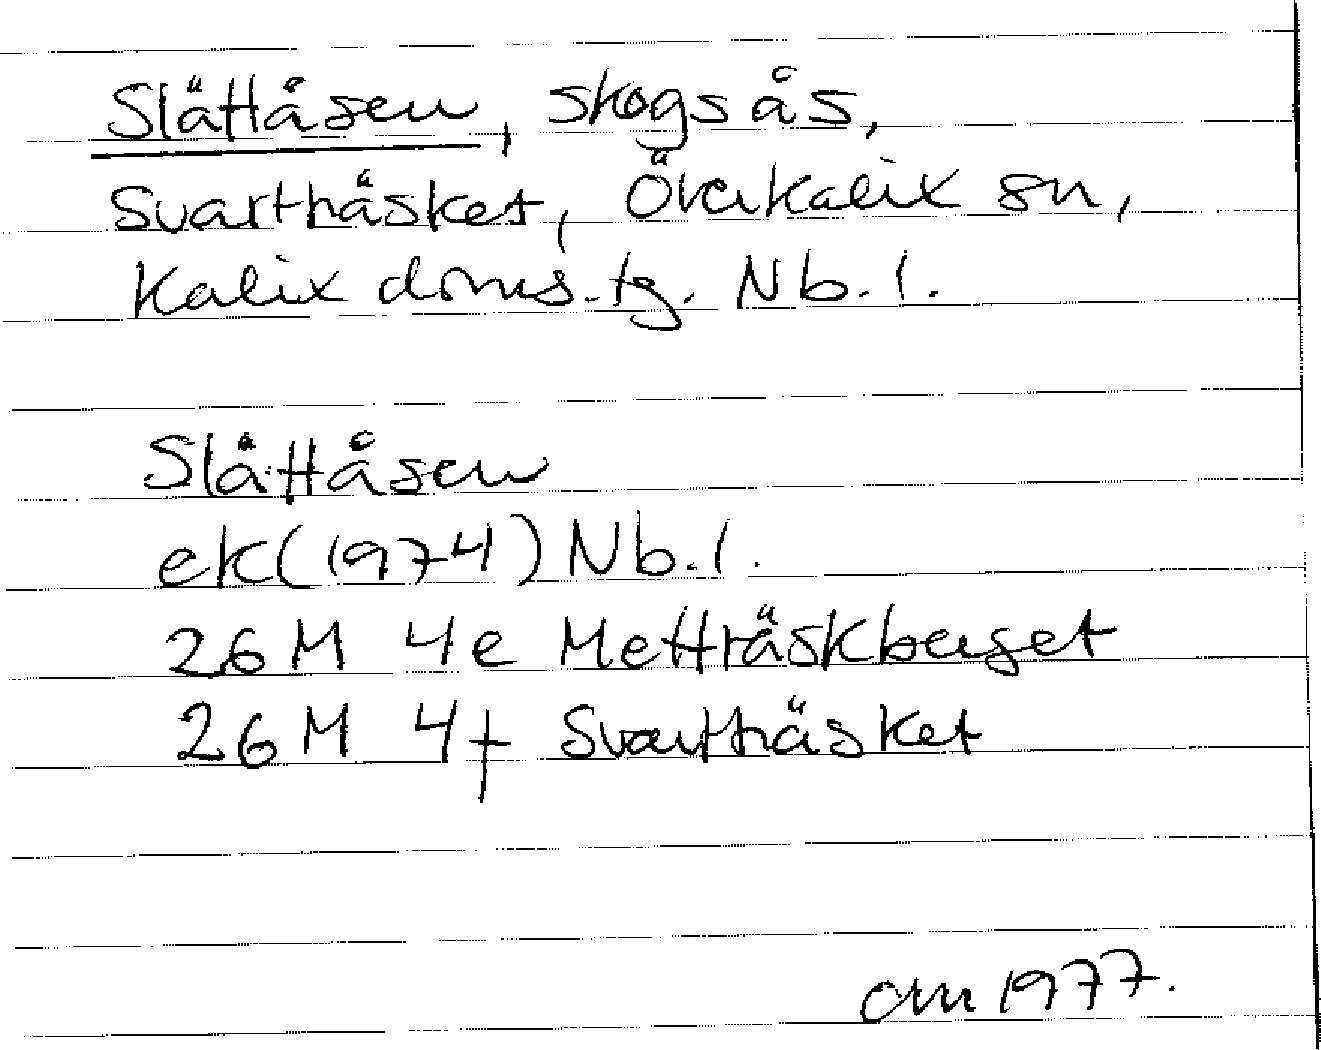 Slättåsen, skogsås,
Svartträsket, Överkalix sn,
Kalix doms.tg. Nb.l.
Slåttåsen
ek(1974) Nb.l.
26 M 4e Metträskberget
26 M 4f Svartträsket
am 1977.